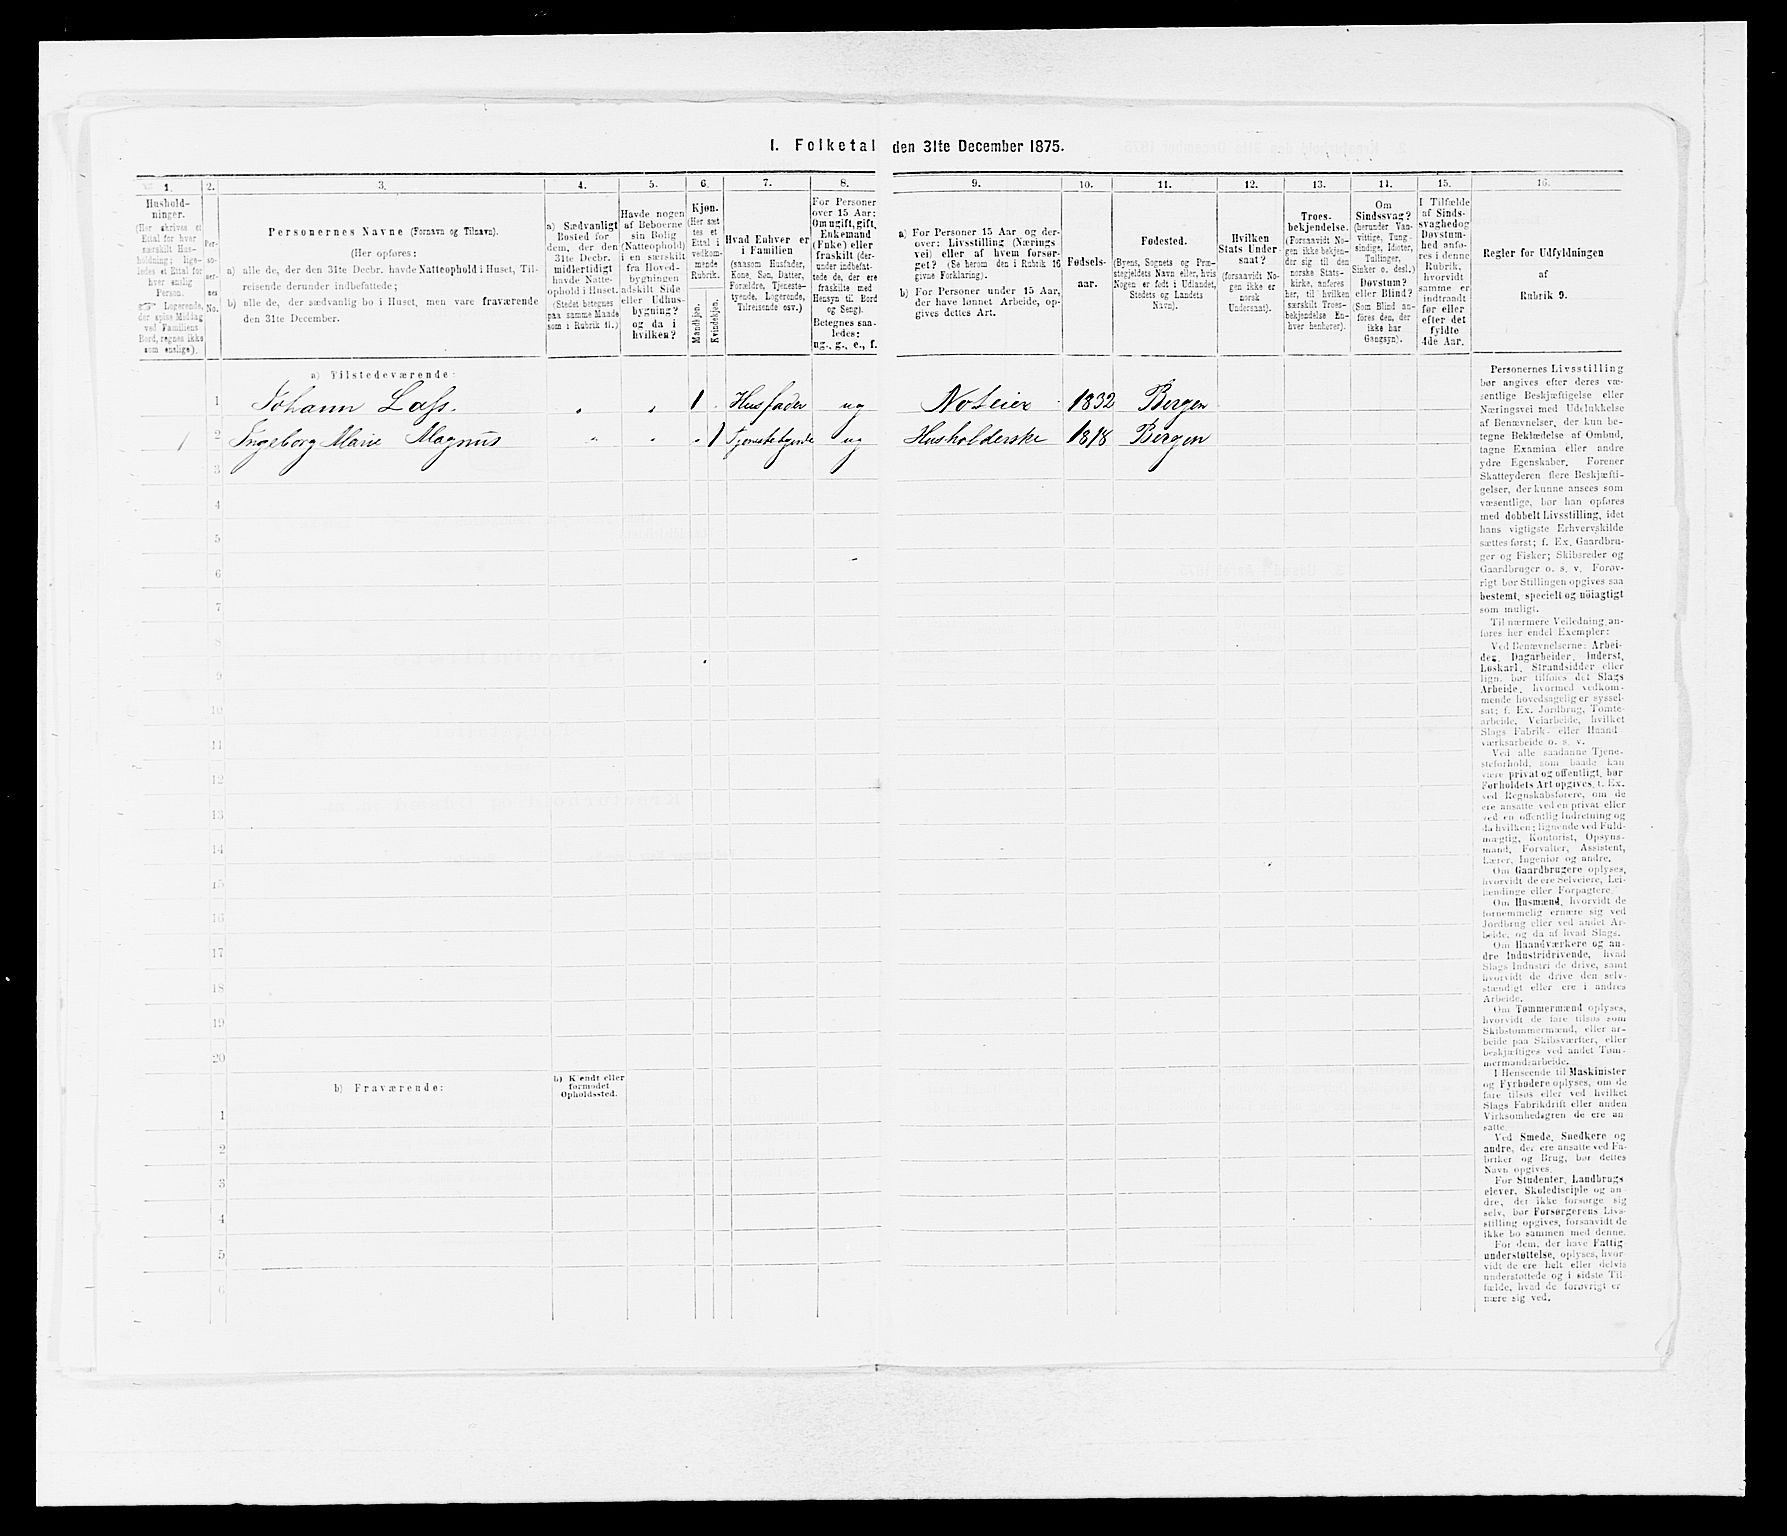 I. Folketal den 31te December 1875.
1. 2. 3. 4. 5. 6. 7. 8. 9. 10. 11. 12. 13. 14. 15. 16.
Hushold-
ninger.
(Her skrives et
Ettal for hver
særskilt Hus-
holdning; lige-
ledes et Ettal for
hver enslig
Person.
Logerende,
der spise Middag
ved Familiens
Bord, regnes ikke
som enslige).
Per-
so-
ner-
nes
No.
Personernes Navne (Fornavn og Tilnavn).
(Her opføres:
a) alle de, der den 31te Decbr. havde Natteophold i Huset, Til-
reisende derunder indbefattede;
b) alle de, der sædvanlig bo i Huset, men vare fraværende
den 31te December.
a) Sædvanligt
Bosted for
dem, der den
31te Decbr.
midlertidigt
havde Natte-
ophold i Huset.
(Stedet betegnes
paa samme Maade
som i Rubrik 11.)
Havde nogen
af Beboerne
sin Bolig
(Natteophold)
i en særskilt
fra Hoved-
bygningen
adskilt Side
eller Udhus-
bygning?
og da i
hvilken?
Kjøn.
(Her sæt
tes et
Ettal i
vedkom-
mende
Rubrik.
Mandkjøn.
Kvindekjøn.
Hvad Enhver er
i Familien
(saasom Husfader,
Kone, Søn, Datter,
Forældre, Tjeneste-
tyende, Logerende,
Tilreisende osv.)
For Personer
over 15 Aar:
Om ugift, gift,
Enkemand
(Enke) eller
fraskilt (der-
under indbefat-
tede de, der ere
fraskilte med
Hensyn til Bord
og Seng).
Betegnes saa-
ledes:
ug., g., e., f.
a) For Personer 15 Aar og der-
over: Livsstilling (Nærings
vei) eller af hvem forsør-
get? (Se herom den i Rubrik 16
givne Forklaring).
b) For Personer under 15 Aar,
der have lønnet Arbeide, op-
gives dettes Art.
Fødsels-
aar.
Fødested.
(Byens, Sognets og Præ-
stegjeldets Navn eller, hvis
Nogen er født i Udlandet,
Stedets og Landets
Navn).
Hvilken
Stats Under-
saat?
(forsaavidt No-
gen ikke er
norsk
Undersaat).
Troes-
bekjendelse.
(Forsaavidt No-
gen ikke bekjen-
der sig til den
norske Stats-
kirke, anføres
her, til hvilken
særskilt Troes-
bekjendelse En-
hver henhører).
Om
Sindssvag?
(herunder Van-
vittige, Tung-
sindige, Idioter,
Tullinger,
Sinker o. desl.)
Døvstum?
eller Blind?
(Som Blind an-
føres den, der
ikke har
Gangsyn).
I Tilfælde
af Sinds-
svaghed og
Døvstum-
hed anfø-
res i denne
Rubrik,
hvorvidt
samme er
indtraadt
før eller
efter det
fyldte
4de Aar.
Regler for Udfyldningen
af
Rubrik 9.
a) Tilstedeværende:
1 Johann Lass. „ „ 1 . Husfader ug Noteier 1832 Bergen
1 2 Ingeborg Marie Magnus „ „ „ 1 Tjenestetyende ug Husholderske 1818 Bergen
3
4
5
6
7
8
9
10
11
12
13
14
15
16
17
18
19
20
b) Fraværende:
b) Kjendt eller
formodet
Opholdssted.
1
2
3
4
5
6
Personernes Livsstilling
bør angives efter deres væ-
sentlige Beskjæftigelse eller
Næringsvei med Udelukkelse
af Benævnelser, der kun be-
tegne Beklædelse af Ombud,
tagne Examina eller andre
ydre Egenskaber. Forener
Skatteyderen flere Beskjæfti-
gelser, der kunne ansees som
væsentlige, bør han opføres
med dobbelt Livsstilling, idet
hans vigtigste Erhvervskilde
sættes først; f. Ex. Gaardbru-
ger og Fisker; Skibsreder og
Gaardbruger o. s. v. Forøv-
rigt bør Stillingen opgives saa
bestemt, specielt og nøiagtigt
som muligt.
Til nærmere Veiledning an-
føres her endel Exempler:
Ved Benævnelserne: Arbei-
der, Dagarbeider, Inderst,
Løskarl, Strandsidder eller
lign. bør tilføies det Slags
Arbeide, hvormed vedkom-
mende hovedsagelig er syssel-
sat; f. Ex. Jordbrug, Tomte-
arbeide, Veiarbeide, hvilket
Slags Fabrik- eller Haand-
værksarbeide o. s. v.
Ved alle saadanne Tjene-
steforhold, som baade kan
være privat og offentligt, bør
Forholdets Art opgives, f. Ex.
ved Regnskabsførere, om de
ere ansatte ved en privat eller
ved en offentlig Indretning og
da hvilken; lignende ved Fuld-
mægtig, Kontorist, Opsyns-
mand, Forvalter, Assistent,
Lærer, Ingeniør og andre.
Om Gaardbrugere oplyses,
hvorvidt de ere Selveiere, Lei-
lændinge eller Forpagtere.
Om Husmænd, hvorvidt de
fornemmelig ernære sig ved
Jordbrug eller ved andet Ar-
beide, og da af hvad Slags.
Om Haandværkere og an-
dre Industridrivende, hvad
Slags Industri de drive, samt
hvorvidt de drive den selv-
stændigt eller ere i andres
Arbeide.
Om Tømmermænd oplyses,
hvorvidt de fare tilsøs som
Skibstømmermænd, eller ar-
beide paa Skibsværfter, eller
beskjæftiges ved andet Tøm-
mermandsarbeide.
I Henseende til Maskinister
og Fyrbødere oplyses, om de
fare tilsøs eller ved hvilket
Slags Fabrikdrift eller anden
Virksomhedsgren de ere an-
satte.
Ved Smede, Snedkere og
andre, der ere ansatte ved Fa-
briker og Brug, bør dettes
Navn opgives.
For Studenter, Landbrugs
elever, Skoledisciple og an-
dre, der ikke forsørge sig
selv, bør Forsørgerens Livs-
stilling opgives, forsaavidt de
ikke bo sammen med denne.
For dem, der have Fattig-
understøttelse, oplyses, hvor-
vidt de ere helt eller delvis
understøttede og i sidste Til-
fælde, hvad de forøvrigt er
nære sig ved.